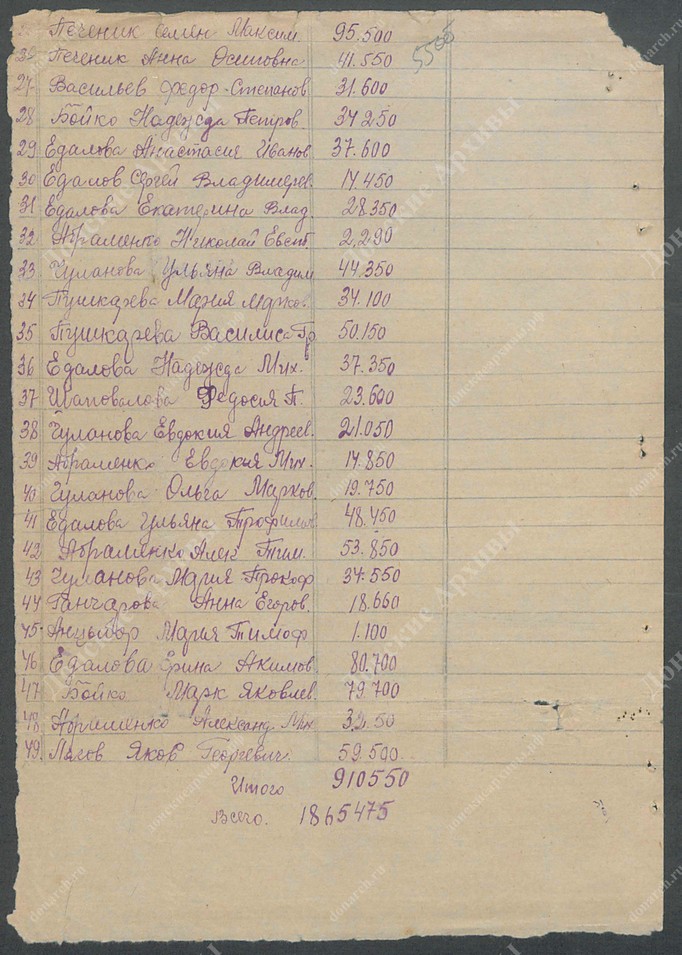 Печеник Семен Максим. 95.500
26 Печеник Анна Осиповна 41.550 5500
27 Васильев Федор Степанов 31.600
28 Бойко Надежда Петров. 34250
29 Едалова Анастасия Иванов 37.600
30 Едалов Сергей Владимеров. 17.450
31 Едалова Екатерина Влад. 28.350
32 Абраменко Николай Евст 2.290
33 Чуланова Ульяна Владим 44.350
34 Пушкарева Мария 34.100
35 Пушкарева Василиса Гр 50.150
36 Едалова Надежда Мих. 37.350
37 Шаповалова Федосия П. 23.600
38 Чуланова Евдокия Андреев. 21.050
39 Абраменко Евдокия Мих. 14.850
40 Чуланова Ольга Марков 19.750
41 Едалова Ульяна Трофимов 48.450
42 Абраменко Алек Тим. 53.850
43 Чуланова Мария Прокоф 34.550
44 Ганчарова Анна Егоров. 18.660
45 Мария Тимоф 1.100
46 Едалова Ерина Акимов 80.700
47 Бойко Марк Яковлев. 79.700
48 Абраменко Александ. Мих 32.50
49. Яков Георгевич. 59.500
Итого 910550
Всего. 1865475
Донские Архивы
donarch.ru